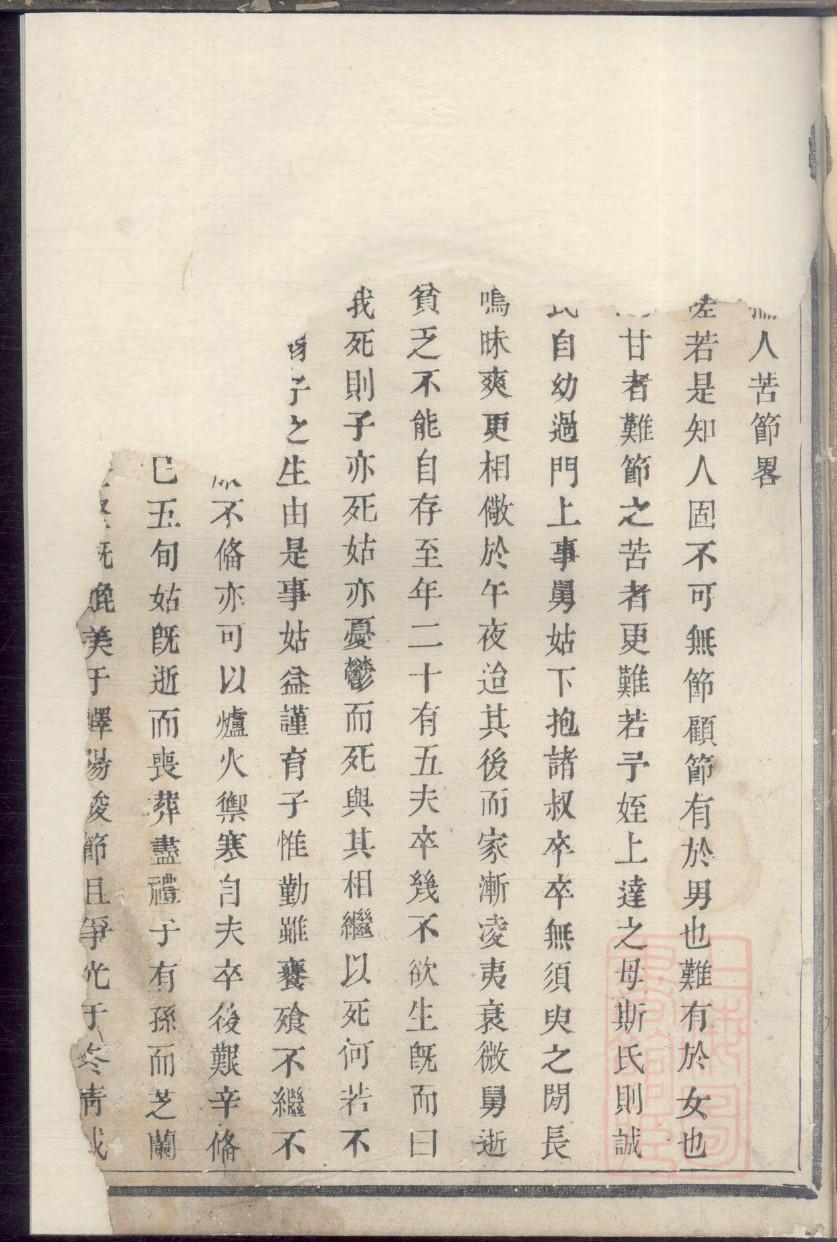 人苦節畧
若是知人固不可無節顧節有於男也難有於女也
甘者難節之苦者更難若予姪上達之母斯氏則誠
氏自幼過門上事舅姑下抱諸叔卒卒無須臾之閒長
鳴昧爽更相儆於午夜迨其後而家漸凌夷衰微舅逝
貧乏不能自存至年二十有五夫卒幾不欲生旣而曰
我死則子亦死姑亦憂鬱而死與其相繼以死何若不
子之生由是事姑益謹育子惟勤雖饔飧不繼不
不俻亦可以爐火禦寒自夫卒後艱辛俻
已五旬姑旣逝而喪葬盡禮子有孫而芝蘭
旣媲美于嶧陽峻節且爭光于冬靑